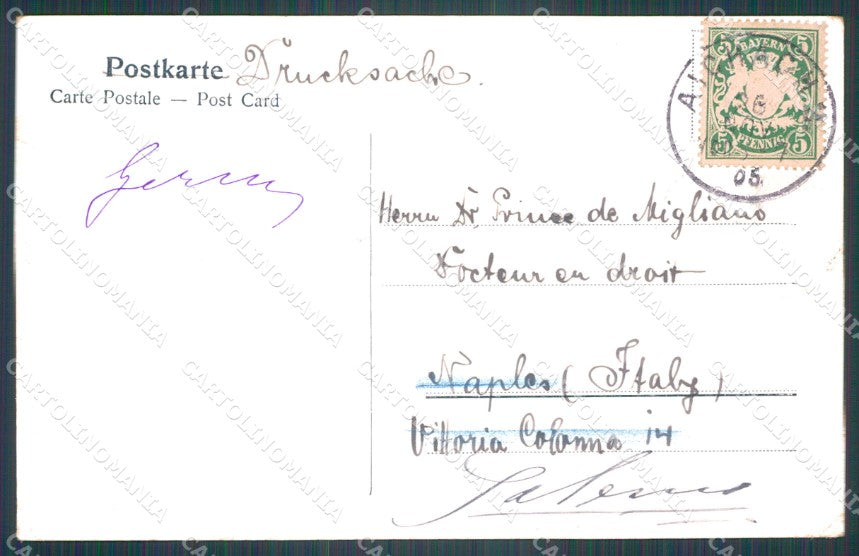 Postkarte Drucksache.
Carte Postale — Post Card
BAYERN
5 5
PFENNIG
05
Herrn Dr Prince de Migliano
Docteur en droit
Naples (Italy)
Vittoria Colonna 14
CARTOLINOMANIA